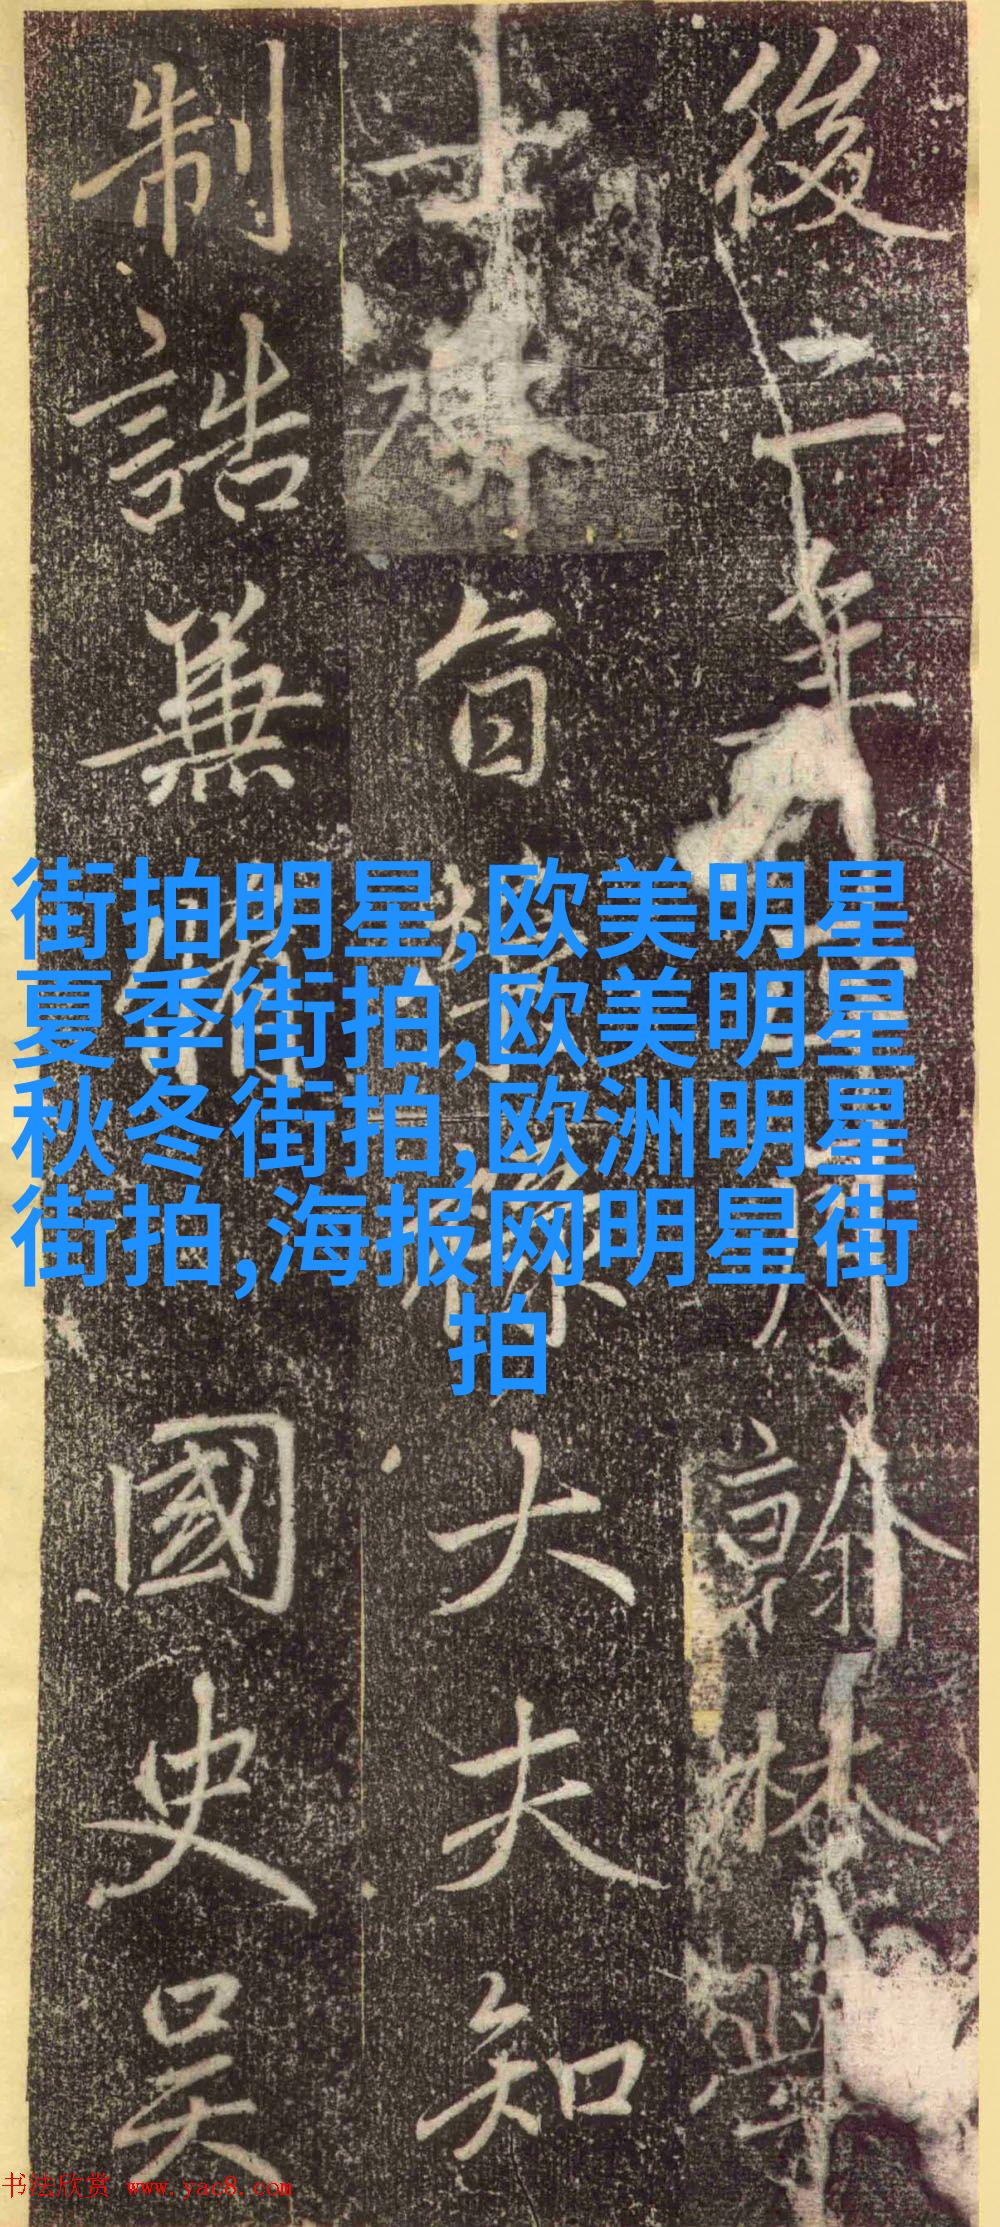 後二年月翰林學
士旨大夫知
制誥兼國史吳
街拍明星,欧美明星
夏季街拍,欧美明星
秋冬街拍,欧洲明星
街拍,海报网明星街
拍
书法欣赏 www.yac8.com